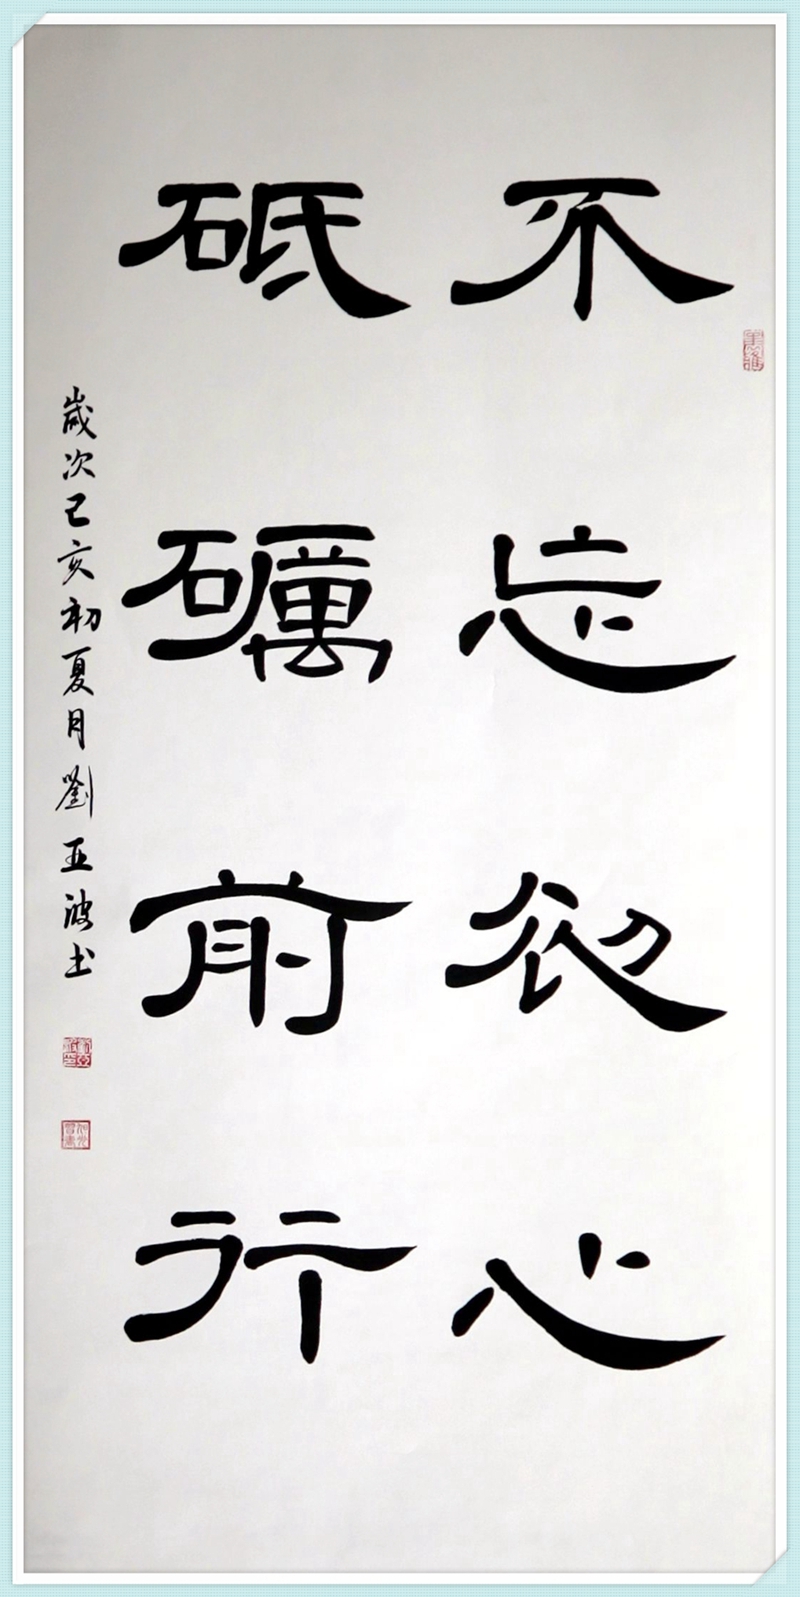 不忘初心
砥礪前行
歲次己亥初夏月劉亞波书